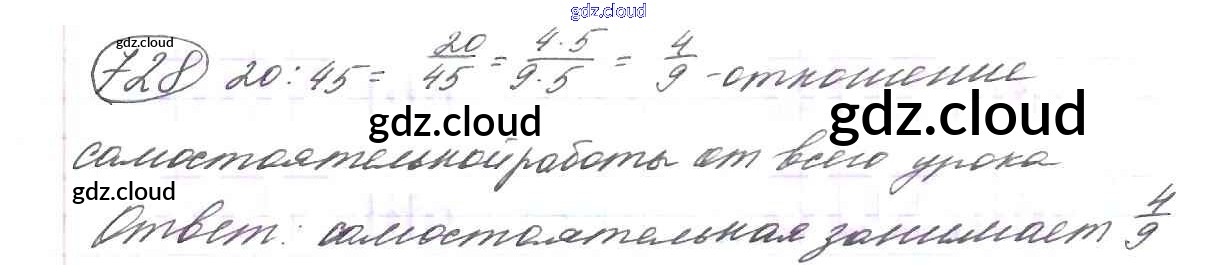 gdz.cloud
gdz.cloud
728 20 : 45 = 20/45 = 4·5/9·5 = 4/9 - отношение
gdz.cloud gdz.cloud
самостоятельной работы от всего урока
gdz.cloud
Ответ: самостоятельная занимает 4/9